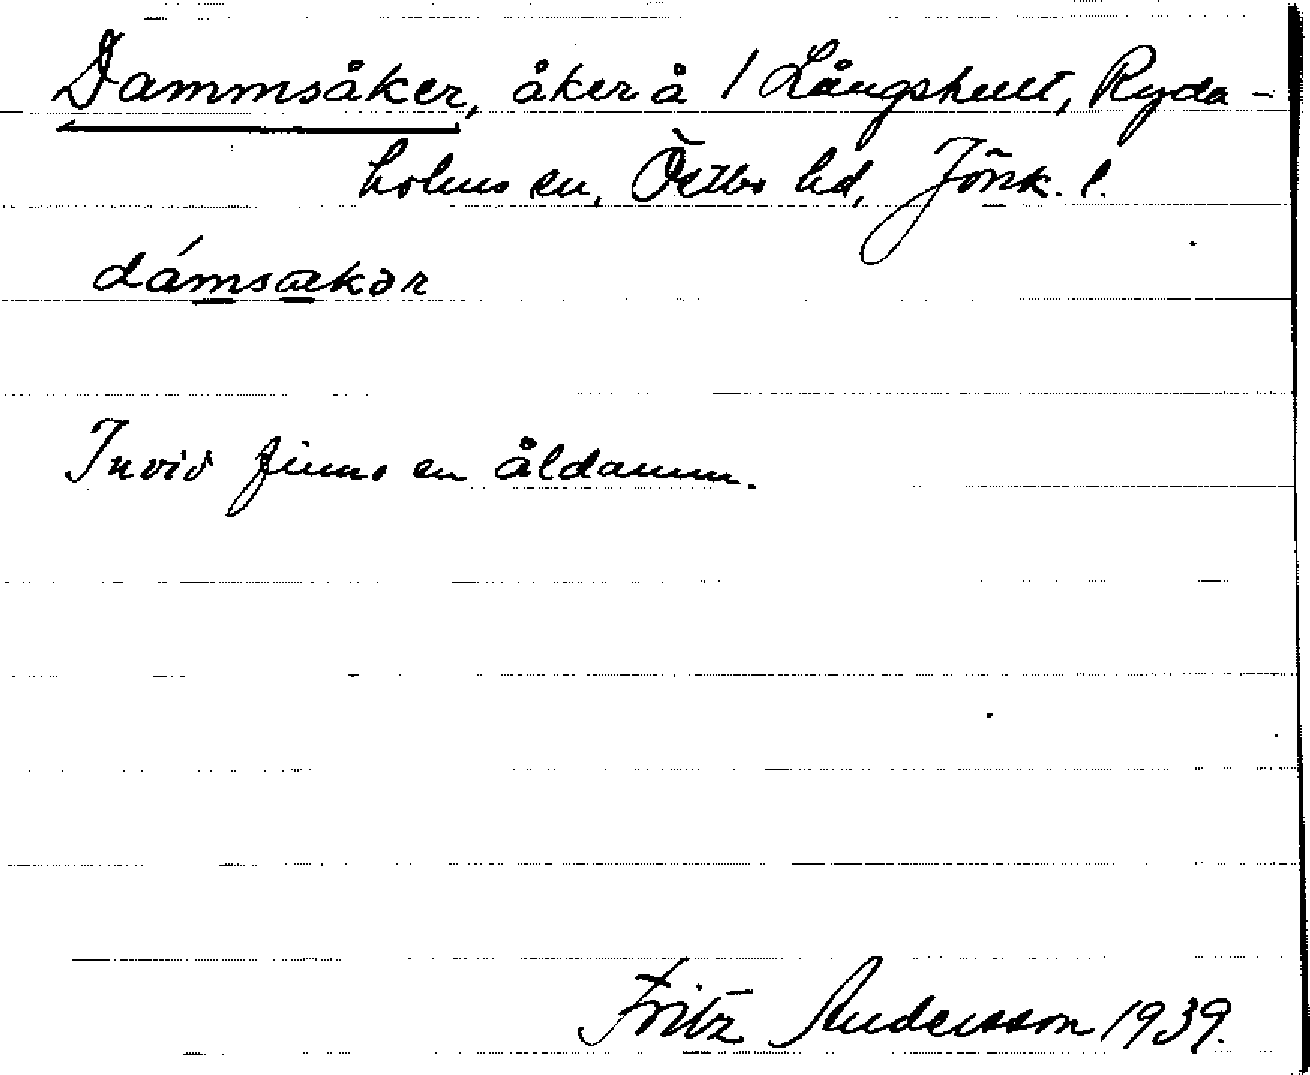 Dammsåker, åker å 1 Långshult, Ryda-
holms sn, Östbo hd, Jönk. l.
dámsækər
Invid finns en åldamm.
Fritz Andersson 1939.